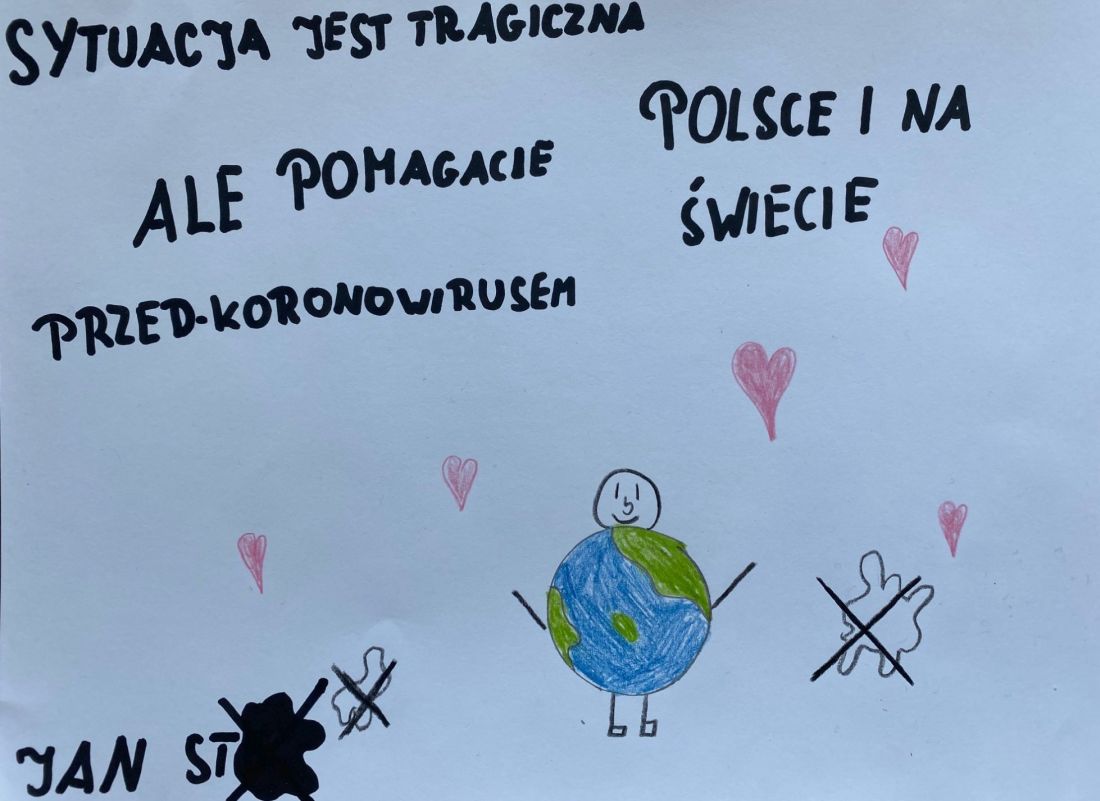 SYTUACJA JEST TRAGICZNA
ALE POMAGACIE
POLSCE I NA
ŚWIECIE
PRZED-KORONOWIRUSEM
JAN ST